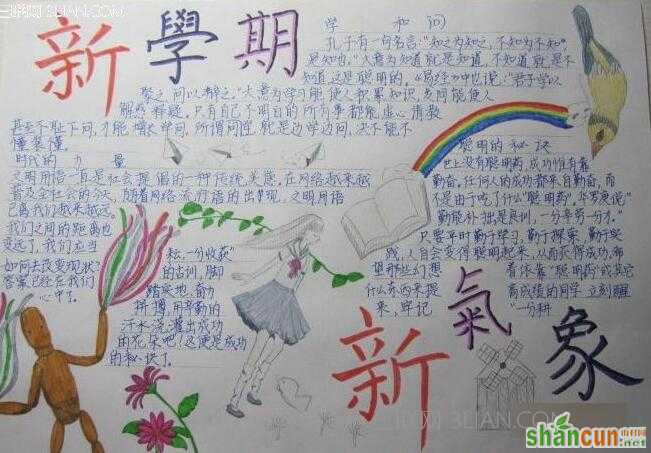 新學期
学 和 问
孔子有一句名言:“知之为知之,不知为不知”
是知也,“大意为知道就是知道,不知道就是不
知道这是聪明的,《易经》中也说:“君子学以
聚之,问以辩之,”大意为学习能使人积累知识,多问能使人
解惑释疑,只有自己不明白的所有事都能虚心请教
甚至不耻下问,才能增长学问,所谓问学就是边学边问,决不能不
懂装懂.
时代的力量
文明用语一直是社会提倡的一种传统美德,在网络越来越
普及全社会的今天,随着网络流行语的出现,文明用语
已离我们越来越远,
我们之间的距离也
变远了,我们应当
如何去改变现状?
答案已经在我们
心中了.
聪明的秘决
世上没有聪明药,成功惟有靠
勤奋,任何人的成功都来自勤奋,而
不是由于吃了什么“聪明药”,华罗庚说:“
勤能补拙是良训,一分辛劳一分才.”
只要平时勤于学习,勤于探索,勤于实
践,人自会变得聪明起来,从而获得成功,希
望那些幻想 看依靠“聪明药”或其它
什么东西来提 高成绩的同学立刻醒
来,牢记 “一分耕
耘,一分收获”
的古训,脚
踏实地,奋力
拼搏,用辛勤的
汗水浇灌出成功
的花朵吧!这便是成功
的秘诀了.
新氣象
三联网 3LIAN.COM
三联网 3LIAN.COM
shancun
山村网
.net